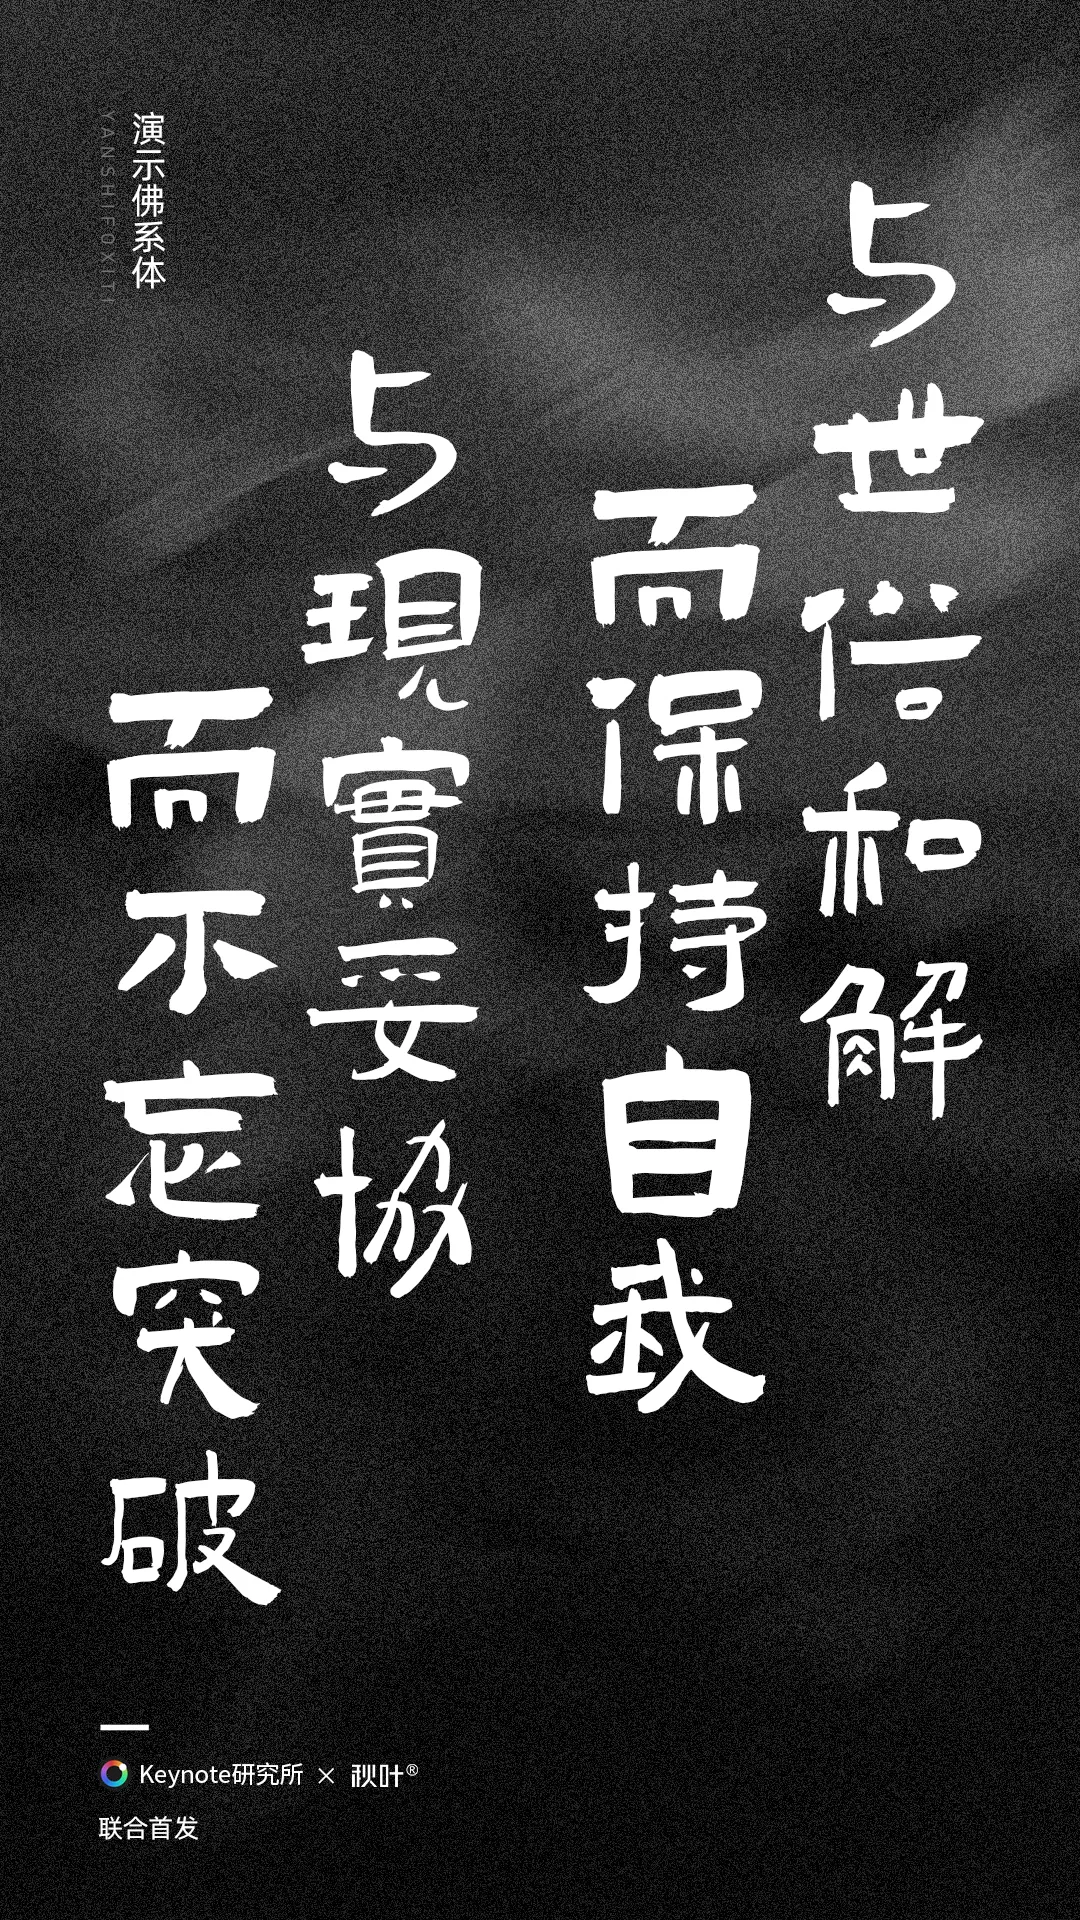 演示佛系体
YANSHIFOXITI
与世俗和解
而保持自我
与現實妥協
而不忘突破
Keynote研究所 × 秋叶®
联合首发